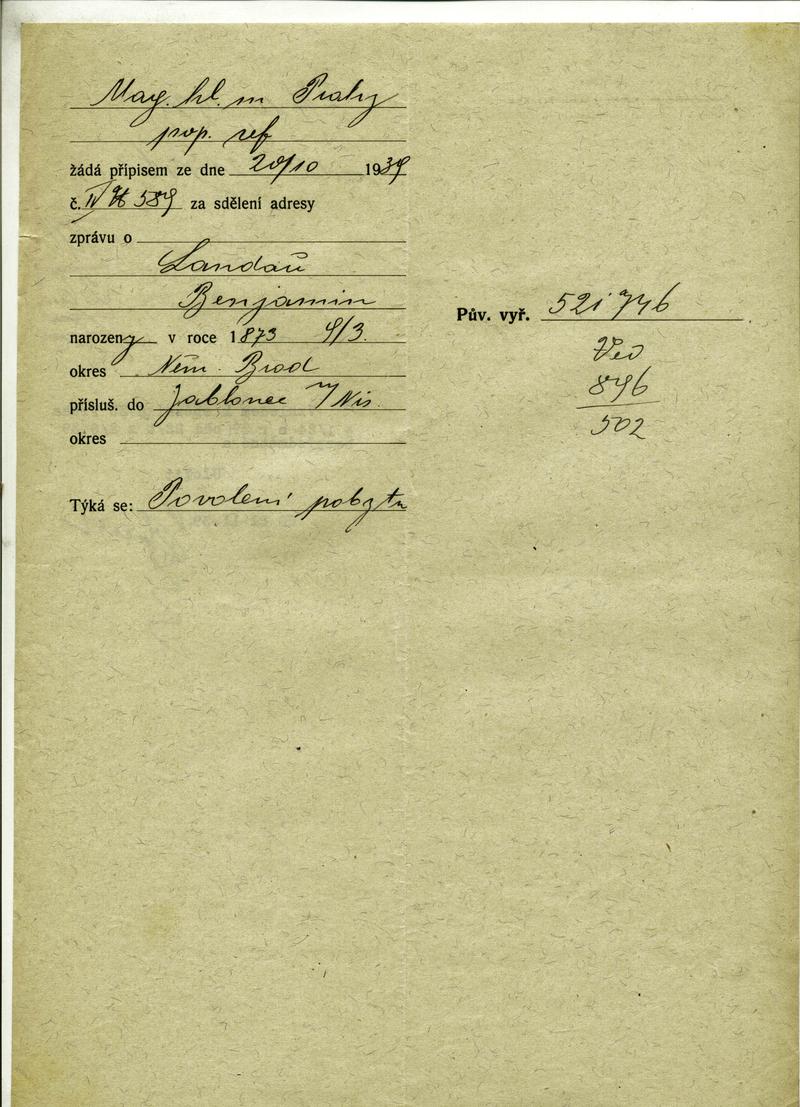 Mag. hl. m Prahy
pop. ref
žádá přípisem ze dne 20/10 1939
č. IV 589 za sdělení adresy
zprávu o
Landau
Benjamin
narozený v roce 1873 9/3.
okres Něm. Brod
přísluš. do Jablonec n/Nis.
okres
Týká se: Povolení pobytu
Pův. vyř. 521746
896
502